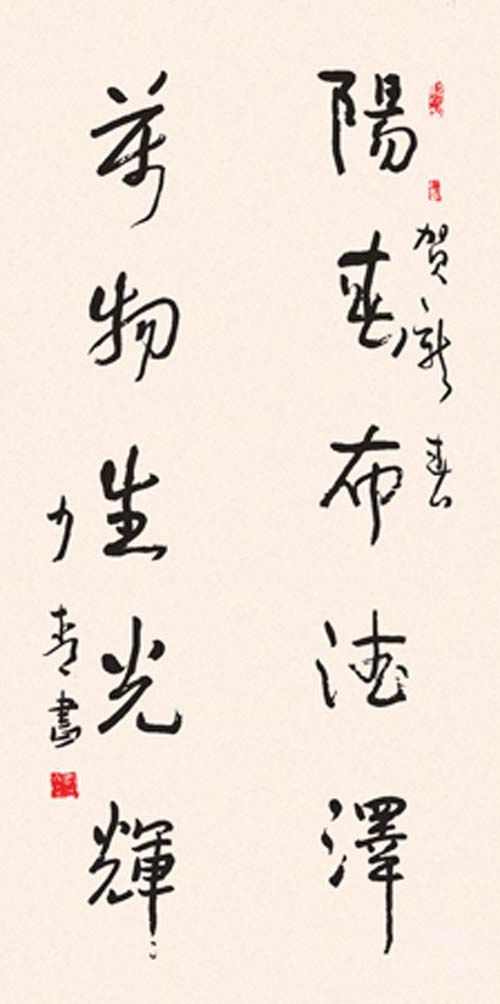 賀新春
陽春布德澤
萬物生光輝
少青書